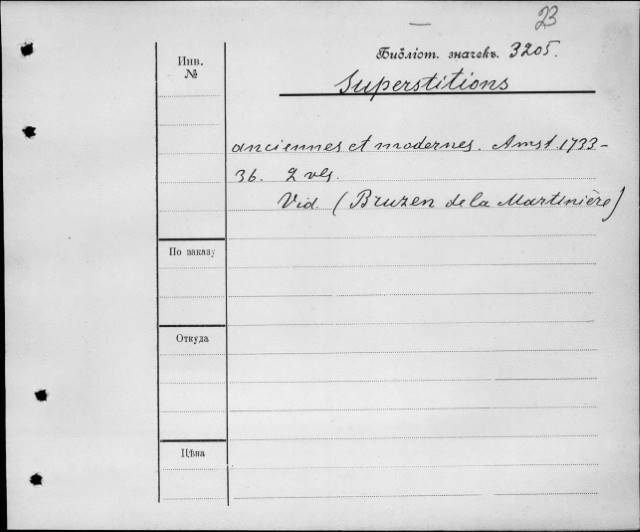 23
Библіот. значекъ. 3205.
Инв.
№
Superstitions
anciennes et modernes. Amst. 1733-
36. 2 vls.
Vid. (Bruzen de la Martinière)
По заказу
Откуда
Цѣна